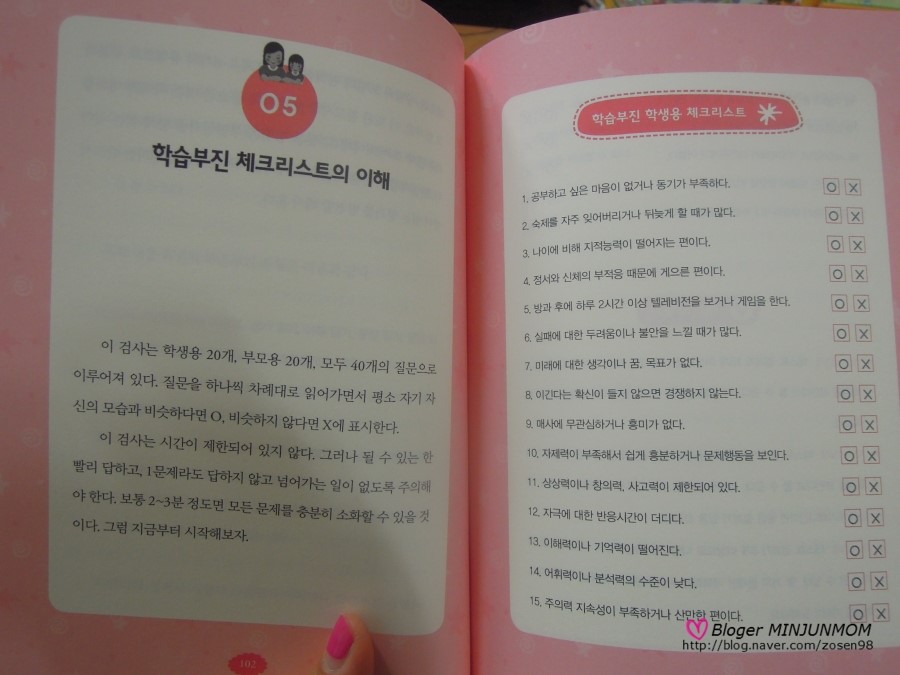 05
학습부진 체크리스트의 이해
이 검사는 학생용 20개, 부모용 20개, 모두 40개의 질문으로
이루어져 있다. 질문을 하나씩 차례대로 읽어가면서 평소 자기 자
신의 모습과 비슷하다면 O, 비슷하지 않다면 X에 표시한다.
이 검사는 시간이 제한되어 있지 않다. 그러나 될 수 있는 한
빨리 답하고, 1문제라도 답하지 않고 넘어가는 일이 없도록 주의해
야 한다. 보통 2~3분 정도면 모든 문제를 충분히 소화할 수 있을 것
이다. 그럼 지금부터 시작해보자.
102
학습부진 학생용 체크리스트
1. 공부하고 싶은 마음이 없거나 동기가 부족하다. O X
2. 숙제를 자주 잊어버리거나 뒤늦게 할 때가 많다. O X
3. 나이에 비해 지적능력이 떨어지는 편이다. O X
4. 정서와 신체의 부적응 때문에 게으른 편이다. O X
5. 방과 후에 하루 2시간 이상 텔레비전을 보거나 게임을 한다. O X
6. 실패에 대한 두려움이나 불안을 느낄 때가 많다. O X
7. 미래에 대한 생각이나 꿈, 목표가 없다. O X
8. 이긴다는 확신이 들지 않으면 경쟁하지 않는다. O X
9. 매사에 무관심하거나 흥미가 없다. O X
10. 자제력이 부족해서 쉽게 흥분하거나 문제행동을 보인다. O X
11. 상상력이나 창의력, 사고력이 제한되어 있다. O X
12. 자극에 대한 반응시간이 더디다. O X
13. 이해력이나 기억력이 떨어진다. O X
14. 어휘력이나 분석력의 수준이 낮다. O X
15. 주의력 지속성이 부족하거나 산만한 편이다. O X
Bloger MINJUNMOM
http://blog.naver.com/zosen98